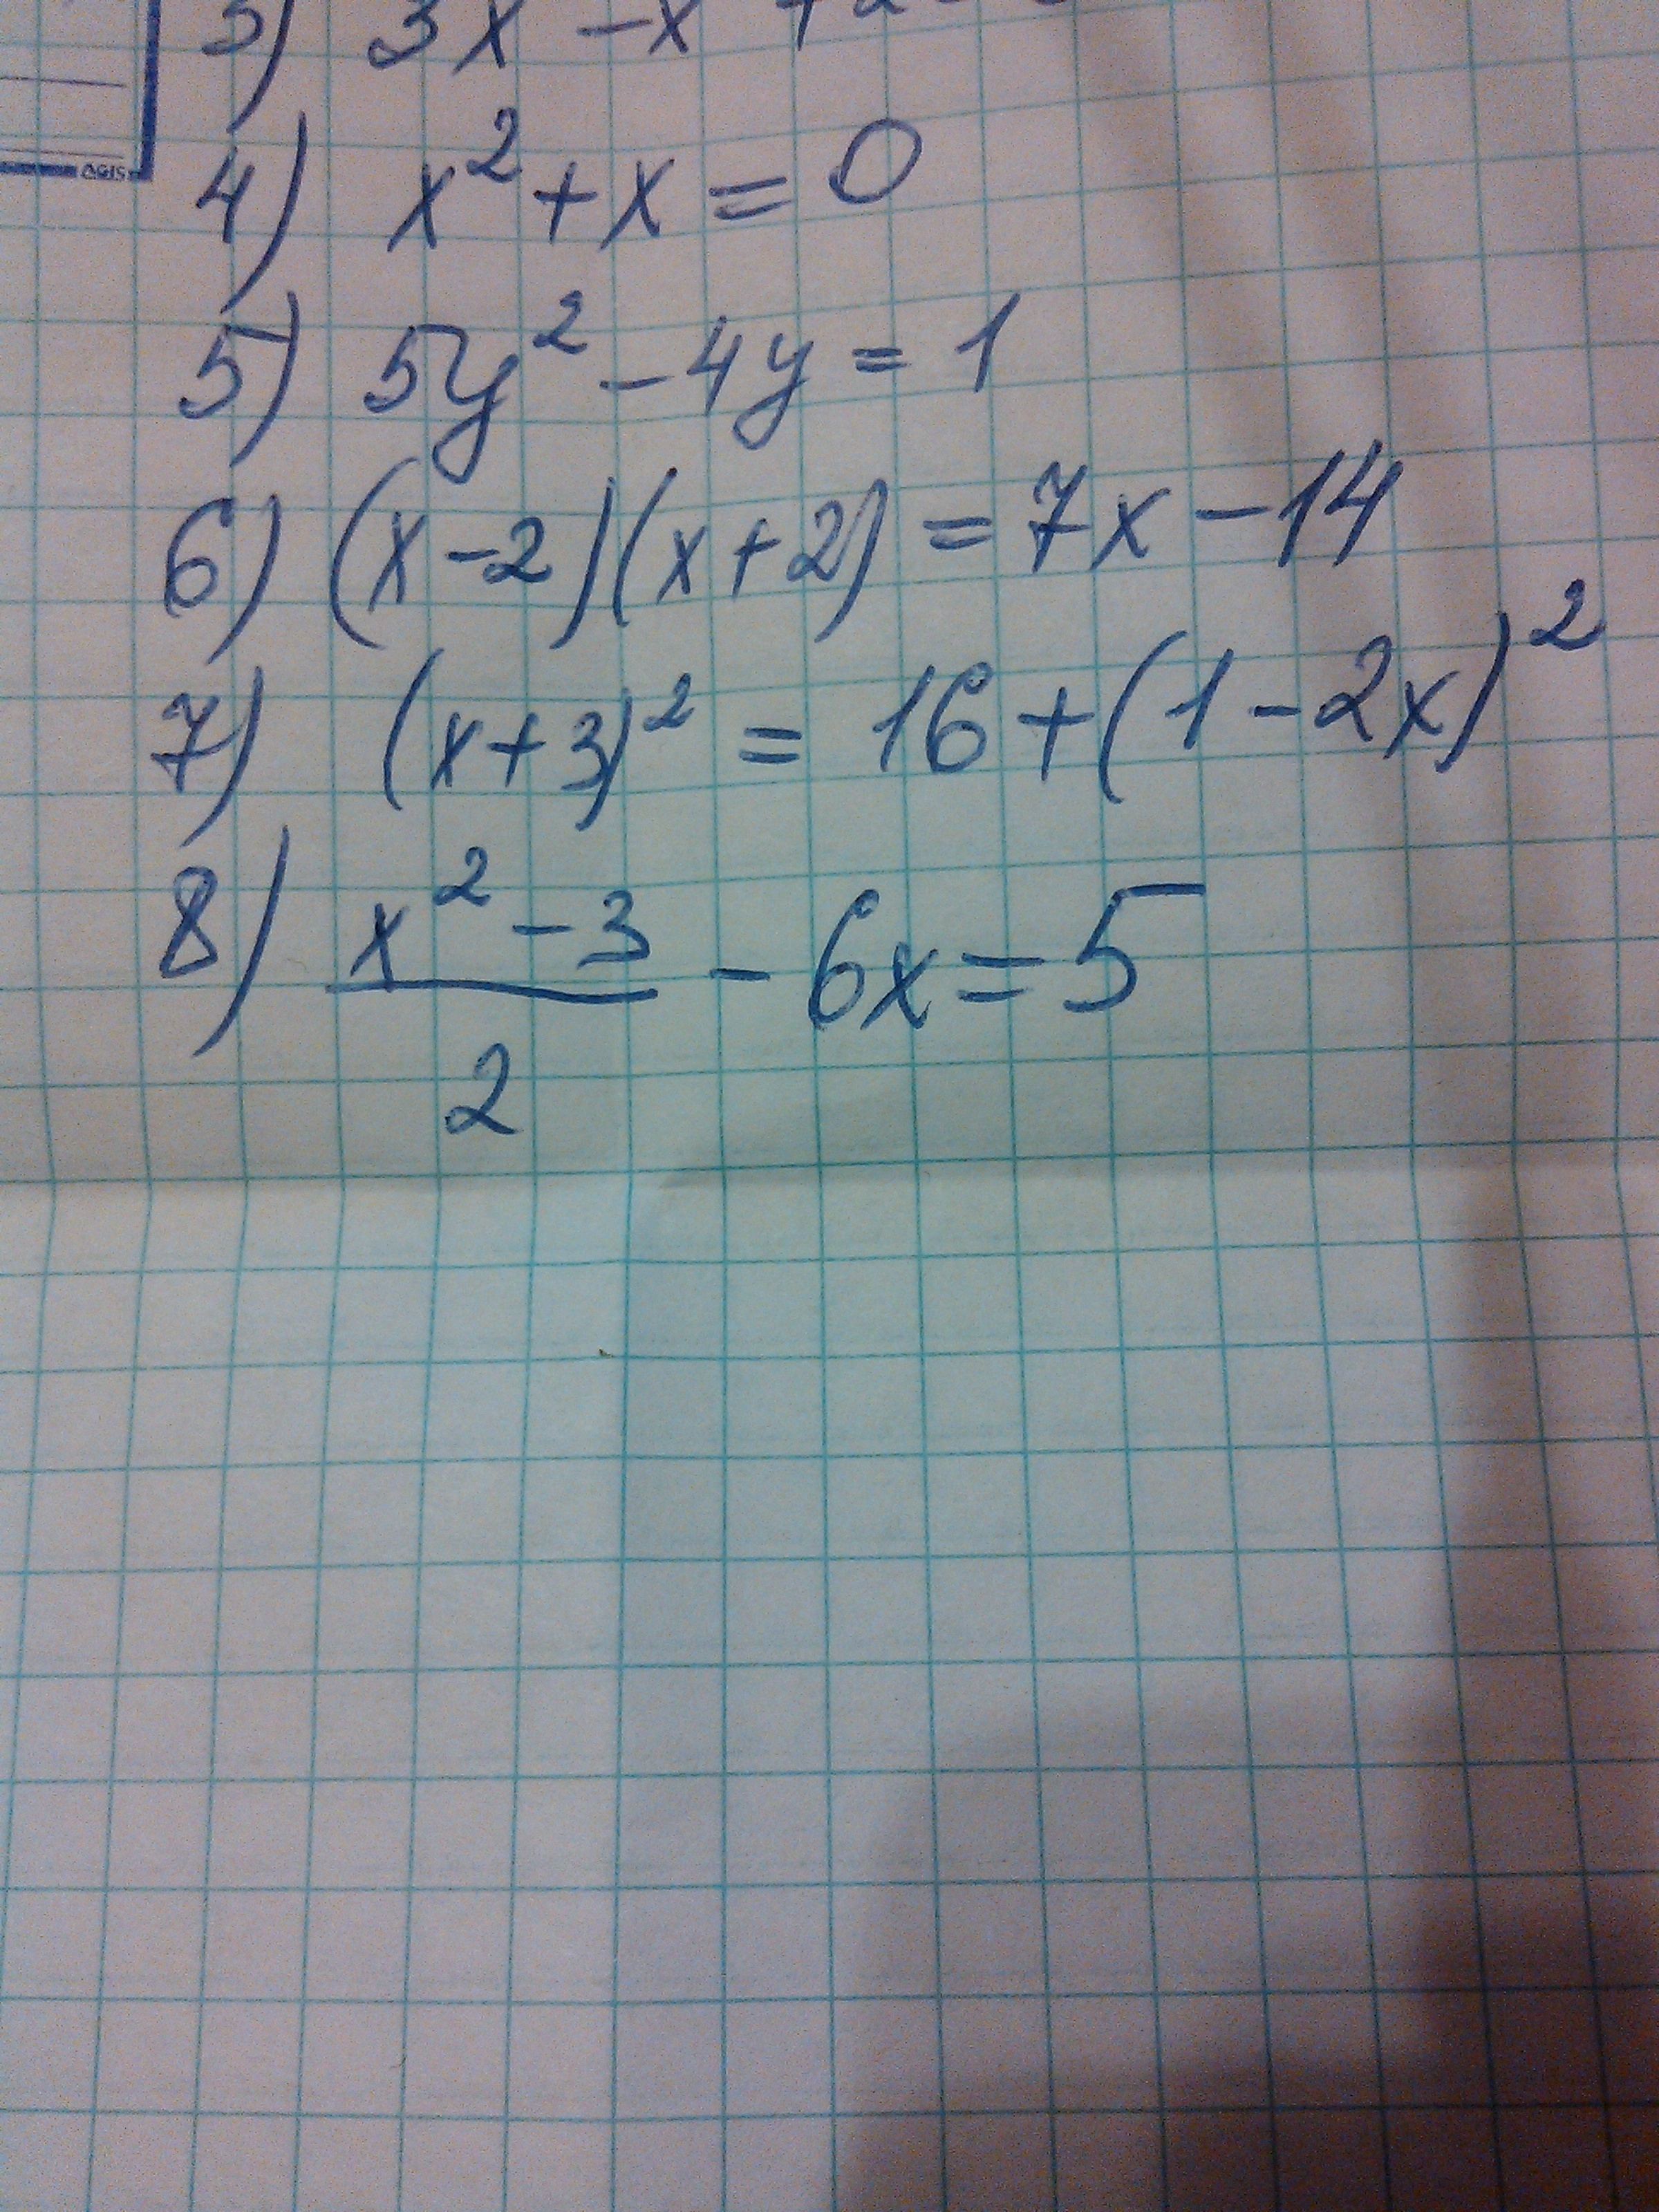 4) x² + x = 0
5) 5y² - 4y = 1
6) (x - 2)(x + 2) = 7x - 14
7) (x + 3)² = 16 + (1 - 2x)²
8) (x² - 3)/2 - 6x = 5